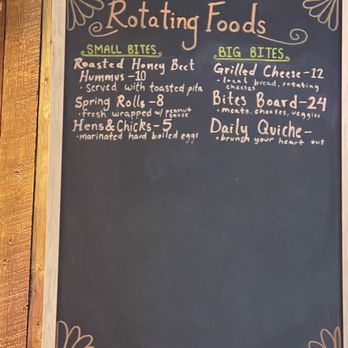 Rotating Foods
SMALL BITES
Roasted Honey Beet
Hummus-10
• Served with toasted pita
Spring Rolls-8
• fresh wrapped w/ peanut
sauce
Hens&Chicks-5
• marinated hard boiled eggs
BIG BITES
Grilled Cheese-12
• local bread, rotating
cheeses
Bites Board-24
• meats, cheeses, veggies
Daily Quiche-
• brunsh your heart out